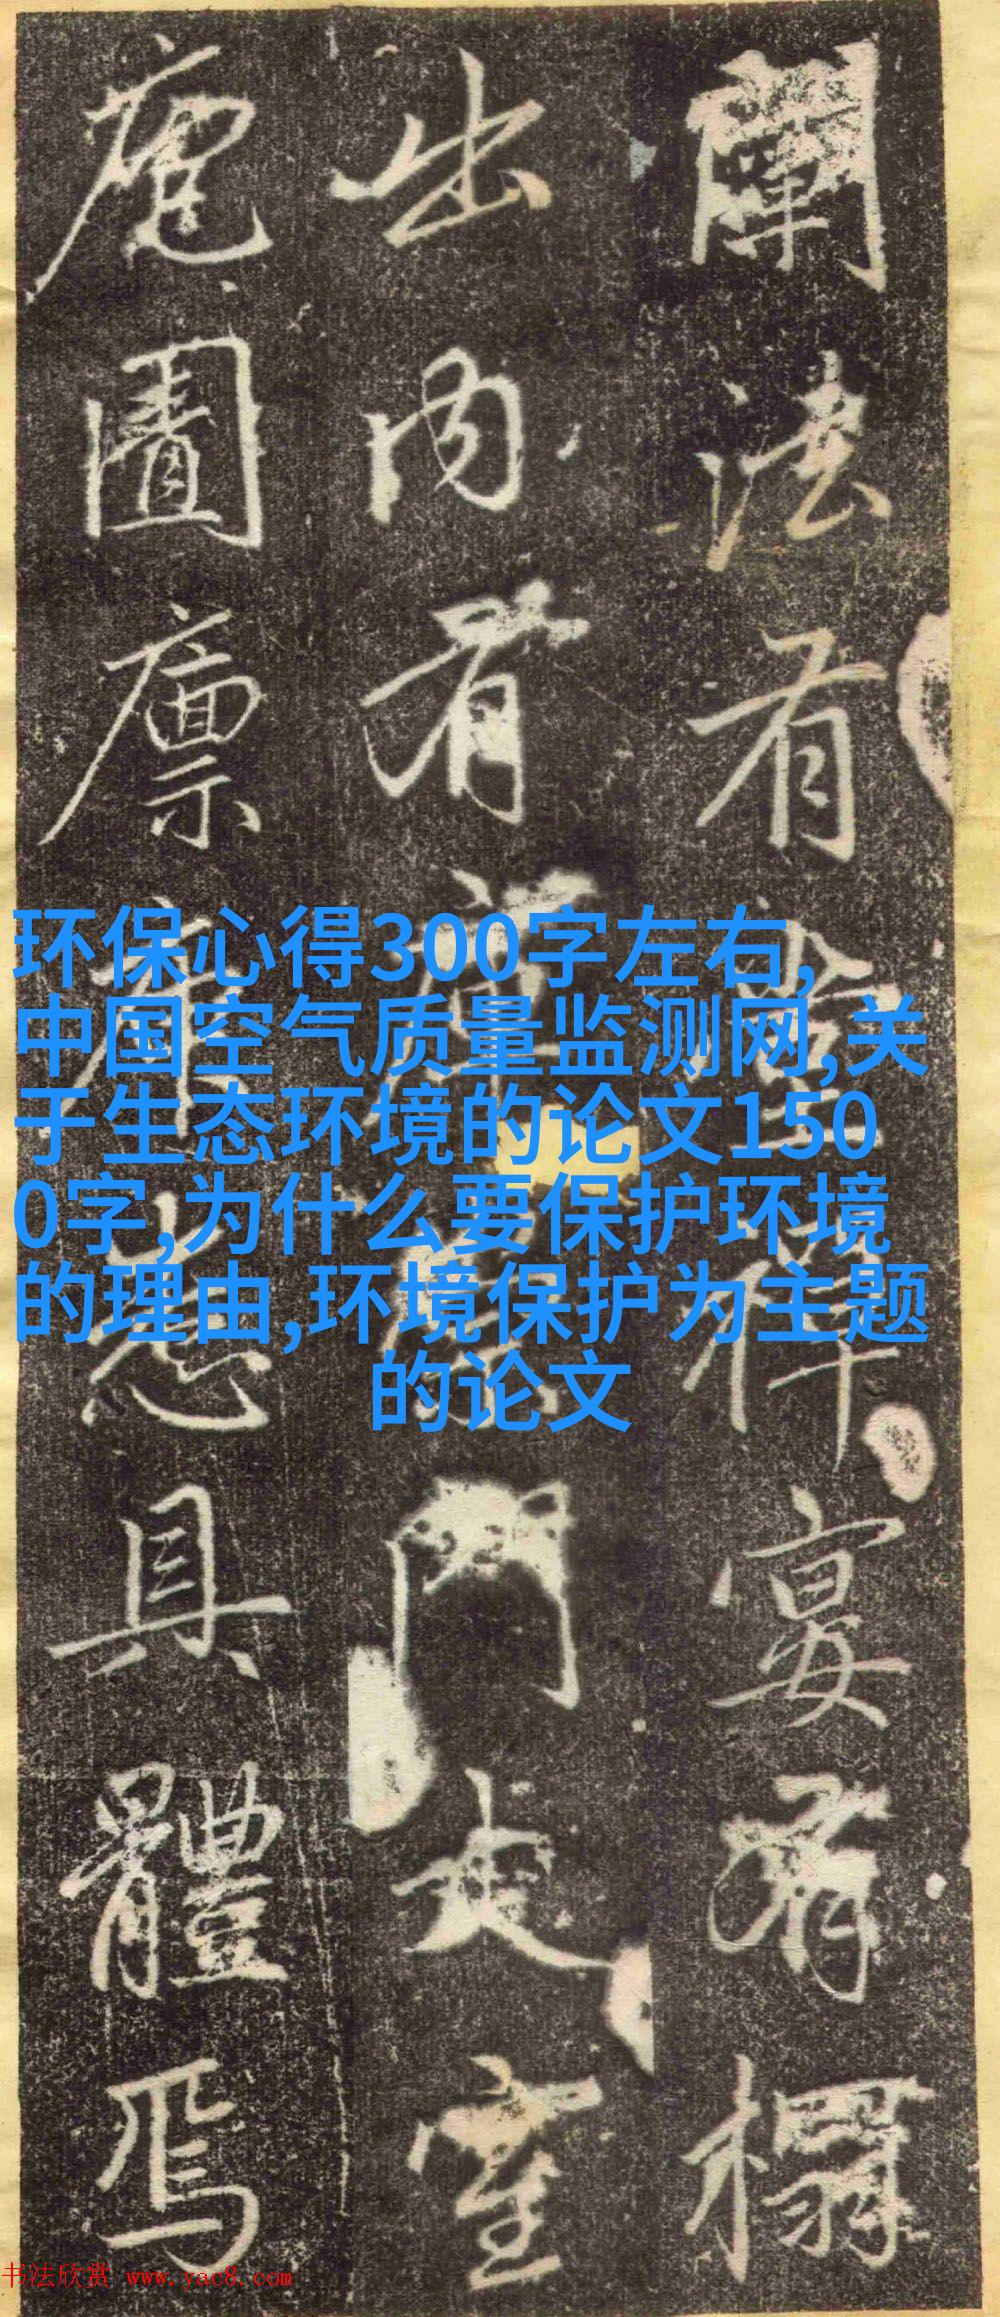 闡法有禪宴有榻
出内有門室
庖圊廪悉具體焉
环保心得300字左右,
中国空气质量监测网,关
于生态环境的论文150
0字,为什么要保护环境
的理由,环境保护为主题
的论文
书法欣赏 www.yac8.com